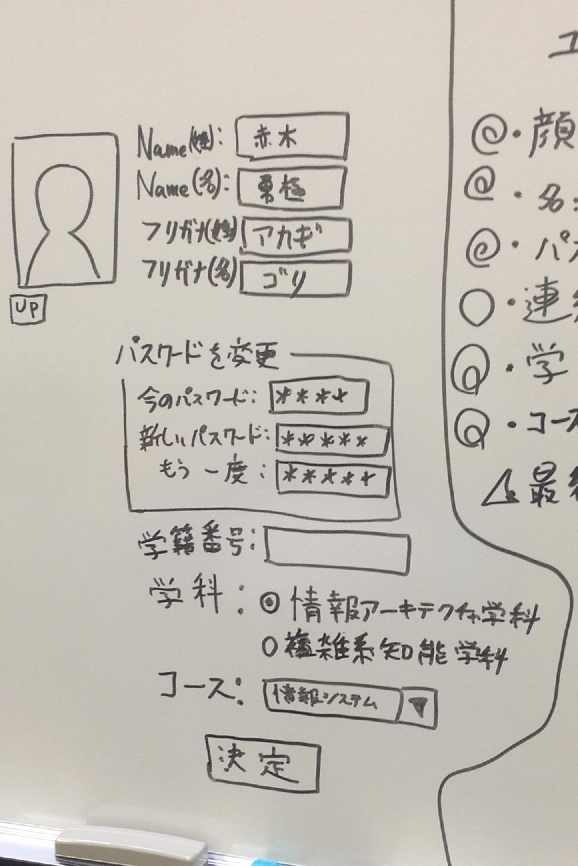 Name(姓): 赤木
Name(名):
フリガナ(姓) アカギ
フリガナ(名) ゴリ
UP
パスワードを変更
今のパスワード: ****
新しいパスワード: *****
もう一度: *****
学籍番号:
学科: ◎情報アーキテクチャ学科
○複雑系知能学科
コース: 情報システム ▼
決定
ユ
◎・顔
◎・名
◎・パス
○・連
◎・学
◎・コース
△最